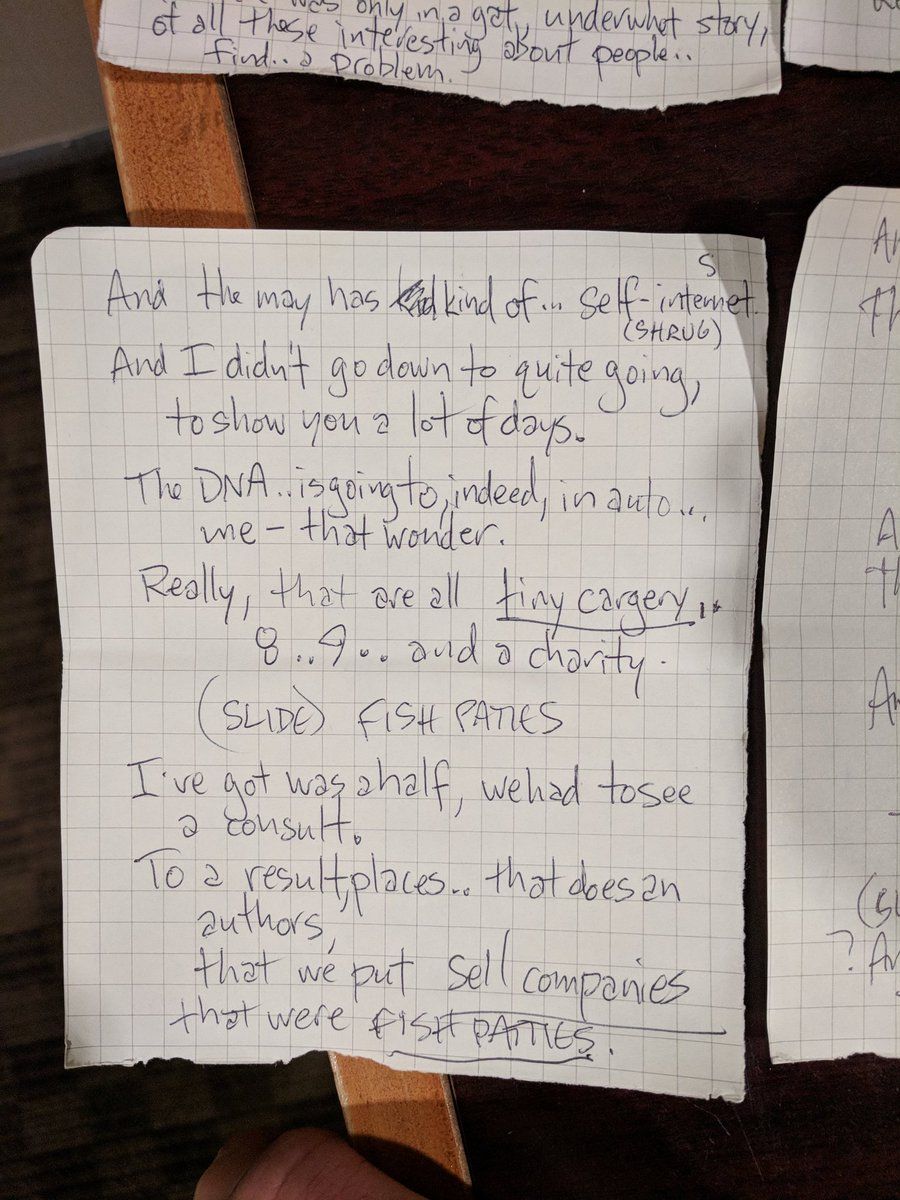 was only in a get, underwhat story,
of all these interesting about people..
find.. a problem.
S
And the may has kind of... self-internet.
(SHRUG)
And I didn't go down to quite going,
to show you a lot of days.
The DNA.. is going to, indeed, in auto...
me - that wonder.
Really, that are all tiny cargery..
8..9... and a charity.
(SLIDE) FISH PATIES
I've got was a half, we had to see
a consult.
To a result, places.. that does an
authors,
that we put sell companies
that were FISH PATTIES.
An
Th
A
th
An
(SL
? An